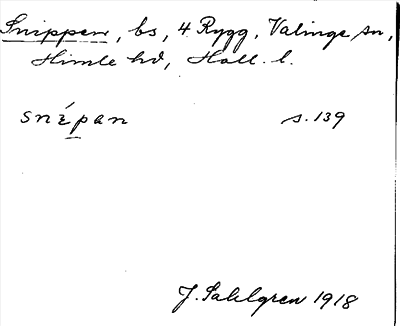 Snippen, bs, 4 Rygg, Valinge sn,
Himle hd, Hall. l.
snépan s. 139
J. Sahlgren 1918